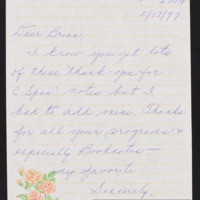 2/17/97
Dear Brian,
I know you get lots
of these thank you for
C Span notes but I
had to add mine. Thanks
for all your programs &
especially Booknotes—
my favorite
Sincerely,